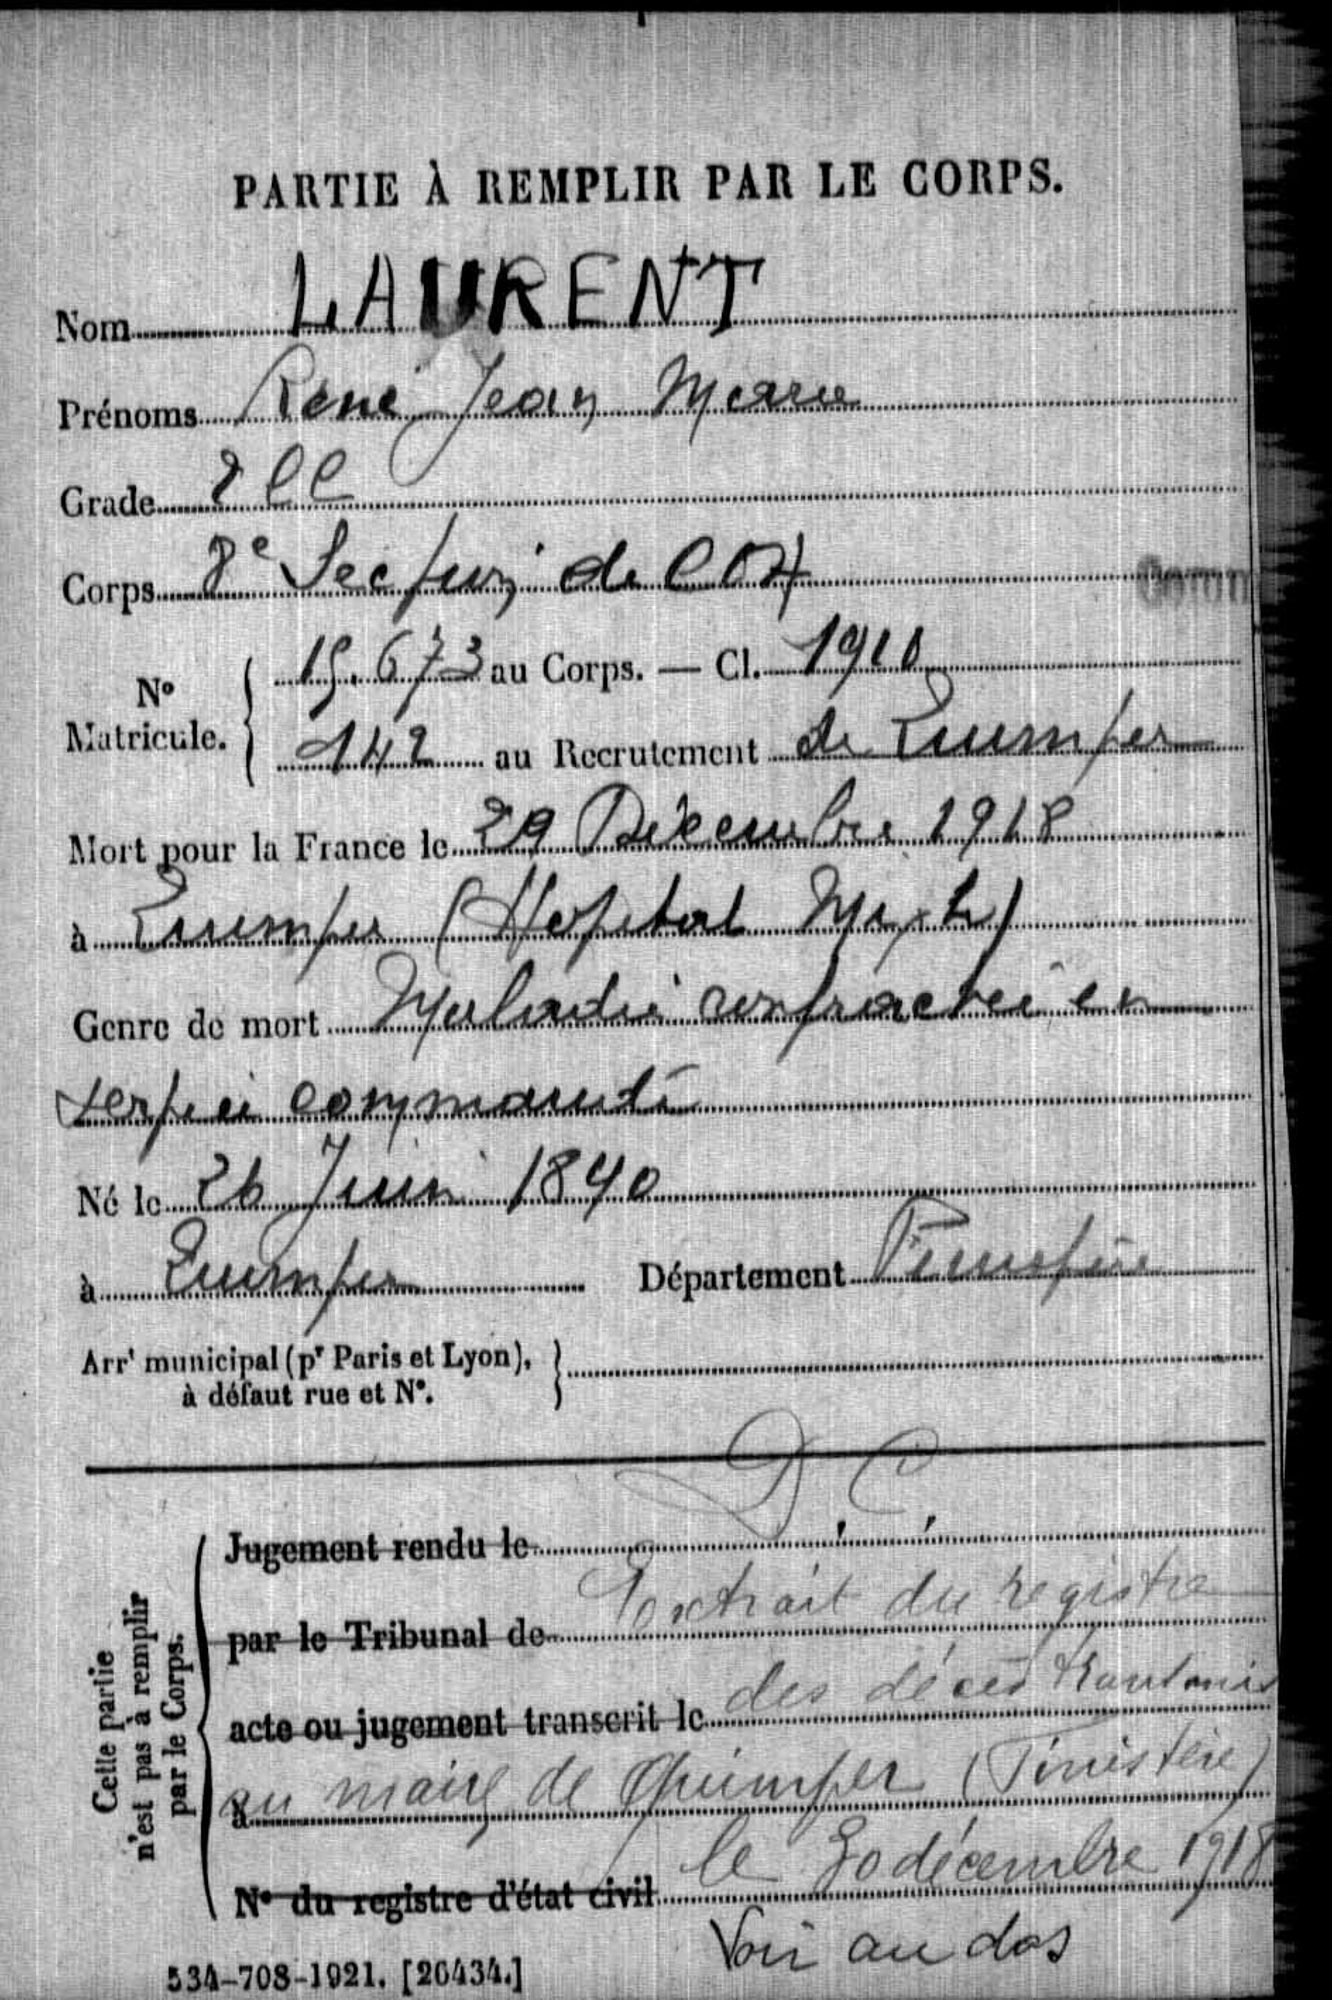 PARTIE À REMPLIR PAR LE CORPS.
Nom LAURENT
Prénoms René Jean Marie
Grade 2 CC
Corps 8e Section de COA
Comm
No Matricule. 15.673 au Corps. — Cl. 1910
142 au Recrutement de Quimper
Mort pour la France le 29 Décembre 1918
à Quimper (Hopital Mixte)
Genre de mort Maladie contractée en
service commandé
Né le 26 Juin 1890
à Quimper Département Finistère
Arrt municipal (pr Paris et Lyon),
à défaut rue et No.
D. C.
Cette partie
n'est pas à remplir
par le Corps.
Jugement rendu le
par le Tribunal de Extrait du registre
acte ou jugement transcrit le des décès transmis
à au maire de Quimper (Finistère)
No du registre d'état civil le 30 décembre 1918
Voir au dos
534-708-1921. [26434.]